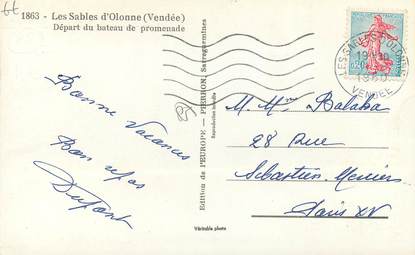 1863 - Les Sables d'Olonne (Vendée)
Départ du bateau de promenade
Bonne Vacances
Bon repos
Dupont
Edition de l'EUROPE - PIERRON, Sarreguemines
Reproduction interdite
85
LES SABLES D'OLONNE
19
VENDÉE
0,20
M. Mme Balaha
28 Rue
Sébastien Mercier
Paris XV
Véritable photo